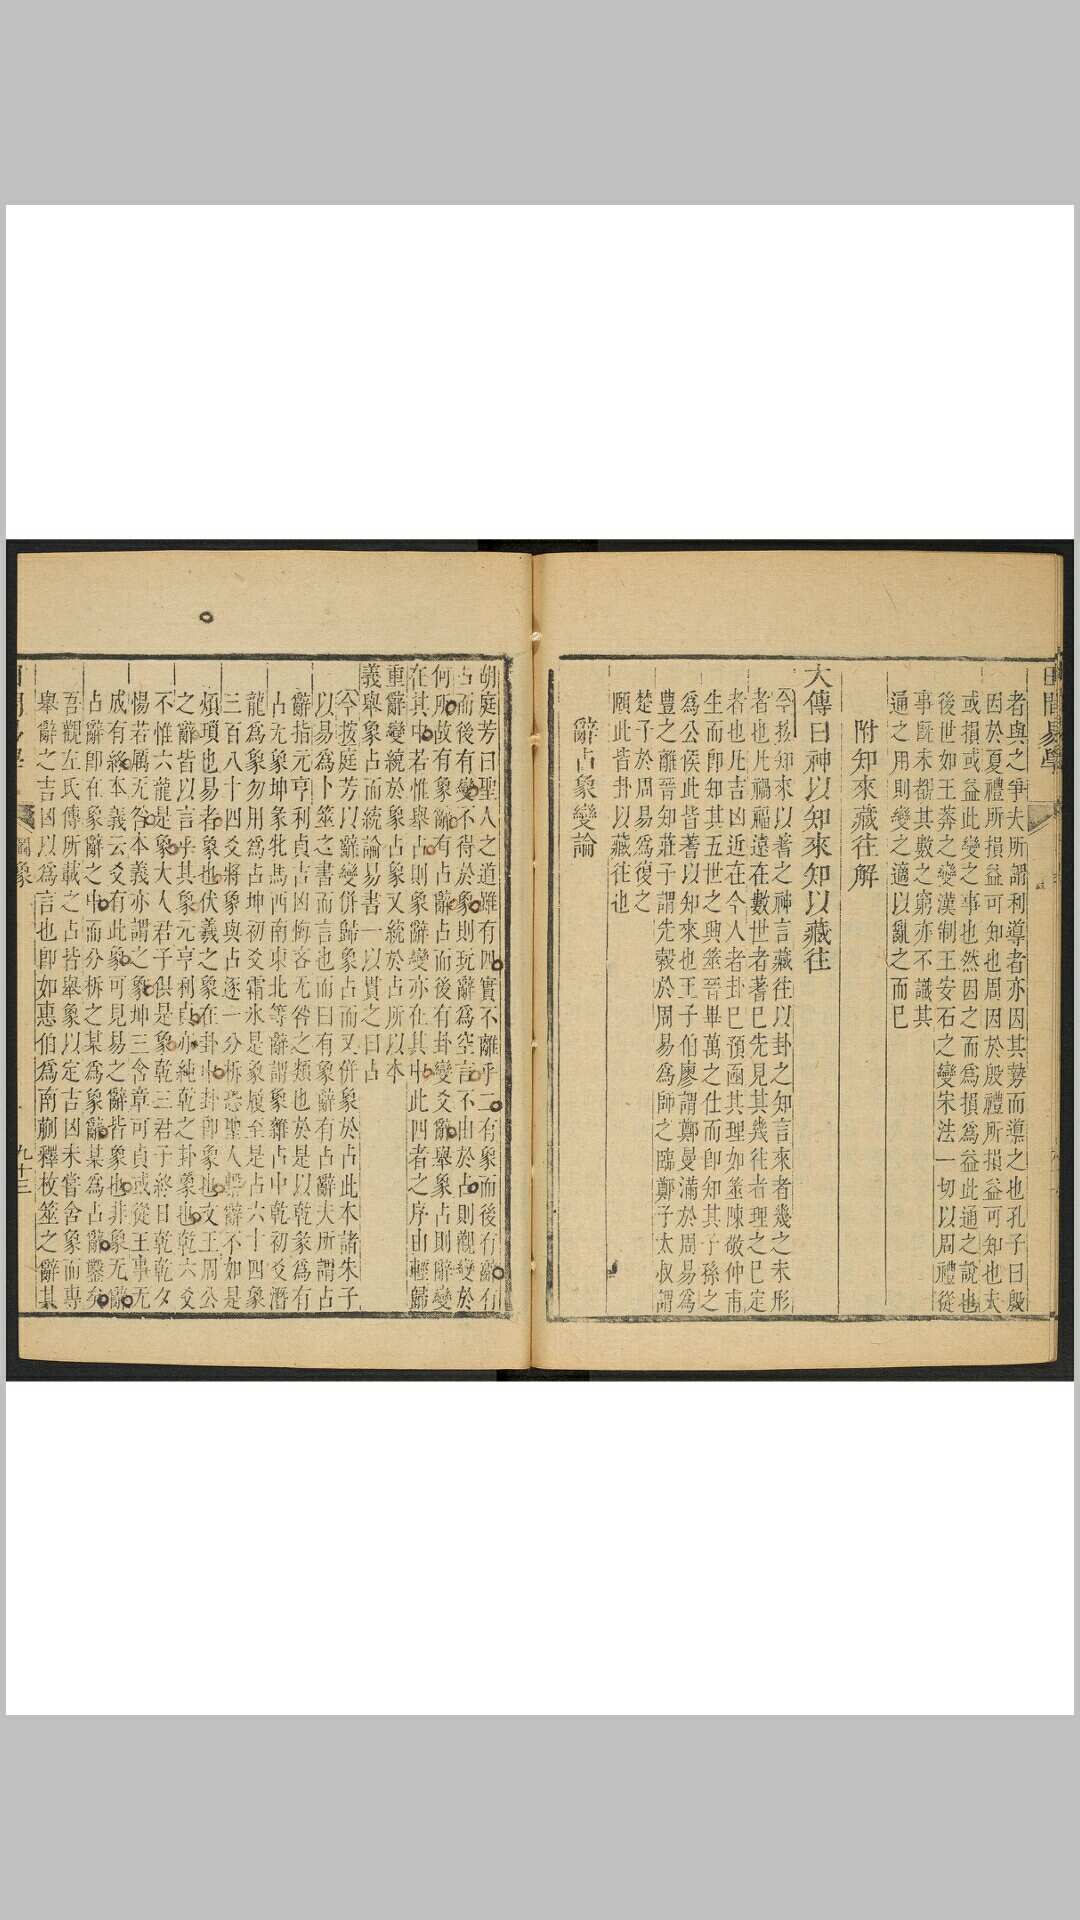 田間易學
者與之爭夫所謂利導者亦因其勢而導之也孔子曰殷
因於夏禮所損益可知也周因於殷禮所損益可知也夫
或損或益此變之事也然因之而爲損爲益此通之說也
後世如王莽之變漢制王安石之變宋法一切以周禮從
事既未覩其數之窮亦不識其
通之用則變之適以亂之而已
附知來藏往解
大傳曰神以知來知以藏往
今按知來以蓍之神言藏往以卦之知言來者幾之未形
者也凡禍福遠在數世者蓍已先見其幾往者理之已定
者也凡吉凶近在今人者卦已預函其理如筮陳敬仲甫
生而卽知其五世之興筮晉畢萬之仕而卽知其子孫之
爲公侯此皆蓍以知來也王子伯廖謂鄭曼滿於周易爲
豐之離晉知莊子謂先縠於周易爲師之臨鄭子太叔謂
楚子於周易爲復之
頤此皆卦以藏往也
辭占象變論
胡庭芳曰聖人之道雖有四實不離乎二有象而後有辭有
占而後有變不得於象則玩辭爲空言不由於占則觀變於
何所故有象辭有占辭占而後有卦變爻辭舉象占則辭變
在其中若惟舉占則象辭變亦在其中此四者之序由輕歸
重辭變統於象占象又統於占所以本
義舉象占而統論易書一以貫之曰占
今按庭芳以辭變併歸象占而又併象於占此本諸朱子
以易爲卜筮之書而言也而曰有象辭有占辭夫所謂占
辭指元亨利貞吉凶悔吝无咎之類也於是以乾彖爲有
占无象坤彖牝馬西南東北等辭謂象雜占中乾初爻潛
龍爲象勿用爲占坤初爻霜氷是象履至是占六十四彖
三百八十四爻將象與占逐一分柝恐聖人繫辭不如是
煩瑣也易者象也伏羲之象在卦中卦卽象也文王周公
之辭皆以言乎其象元亨利貞亦純乾之卦象也乾六爻
不惟六龍是象大人君子俱是象乾三君子終日乾乾夕
惕若厲无咎本義亦謂之象坤三含章可貞或從王事无
成有終本義云爻有此象可見易之辭皆象也非象无辭
占辭卽在象辭之中而分柝之某爲象辭某爲占辭鑿矣
吾觀左氏傳所載之占皆舉象以定吉凶未嘗舍象而專
舉辭之吉凶以爲言也卽如惠伯爲南蒯釋枚筮之辭其
九十三